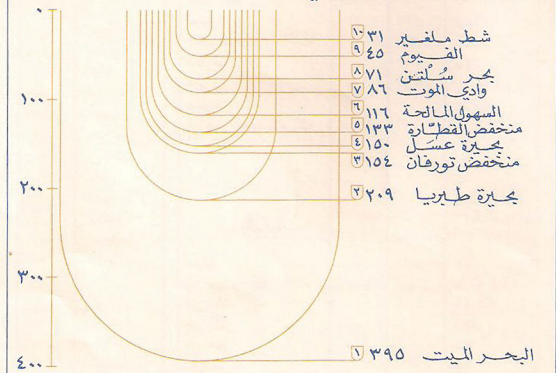 ٠
١٠٠
٢٠٠
٣٠٠
٤٠٠
١٠ ٣١ شط ملغير
٩ ٤٥ الفيوم
٨ ٧١ بحر سُلْتن
٧ ٨٦ وادي الموت
٦ ١١٦ السهول المالحة
٥ ١٣٣ منخفض القطّارة
٤ ١٥٠ بحيرة عسَل
٣ ١٥٤ منخفض تورفان
٢ ٢٠٩ بحيرة طبريا
١ ٣٩٥ البحر الميت